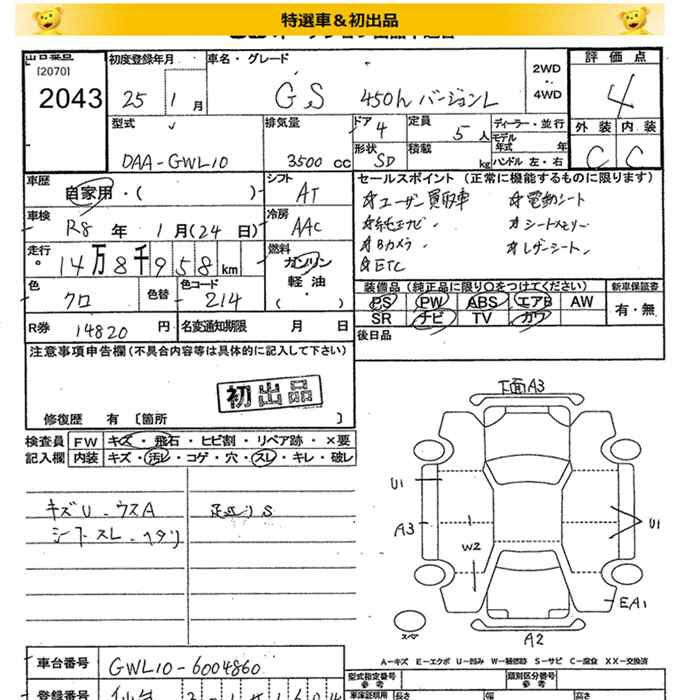 特選車＆初出品
[2070]
2043
初度登録年月
25 1月
車名・グレード
GS 450h バージョンL
2WD
・
4WD
評価点
4
外装 内装
C C
型式
DAA-GWL10
排気量
3500 cc
ドア 4
形状 SD
定員 5人
積載 kg
ディーラー・並行
モデル年式 年
ハンドル 左・右
車歴
自家用・( )
シフト
AT
車検
R8年 1月(24日)
冷房
AAC
走行
14万8千958km
燃料
ガソリン
軽油
・
( )
色
クロ
色替
色コード
214
R券 14820円
名変通知期限 月 日
セールスポイント (正常に機能するものに限ります)
☆ユーザー買取車
☆純正ナビ
☆Bカメラ
☆ETC
☆電動シート
☆シートメモリー
☆レザーシート
装備品 (純正品に限り○をつけてください)
PS PW ABS エアB AW
SR ナビ TV カワ
新車保証書
有・無
後日品
注意事項申告欄 (不具合内容等は具体的に記入して下さい)
初出品
修復歴 有 〔箇所 〕
検査員記入欄
FW キズ・飛石・ヒビ割・リペア跡・×要
内装 キズ・汚レ・コゲ・穴・スレ・キレ・破レ
キズU・ウスA
シートスレ・ヘタリ
足廻りS
下面A3
U1
A3
W2
U1
EA1
A2
スペア
A－キズ E－エクボ U－凹み W－補修跡 S－サビ C－腐食 XX－交換済
車台番号
GWL10-6004860
型式指定番号
参考
類別区分番号
参考
登録番号
仙台
車庫証明用 長さ 幅 高さ